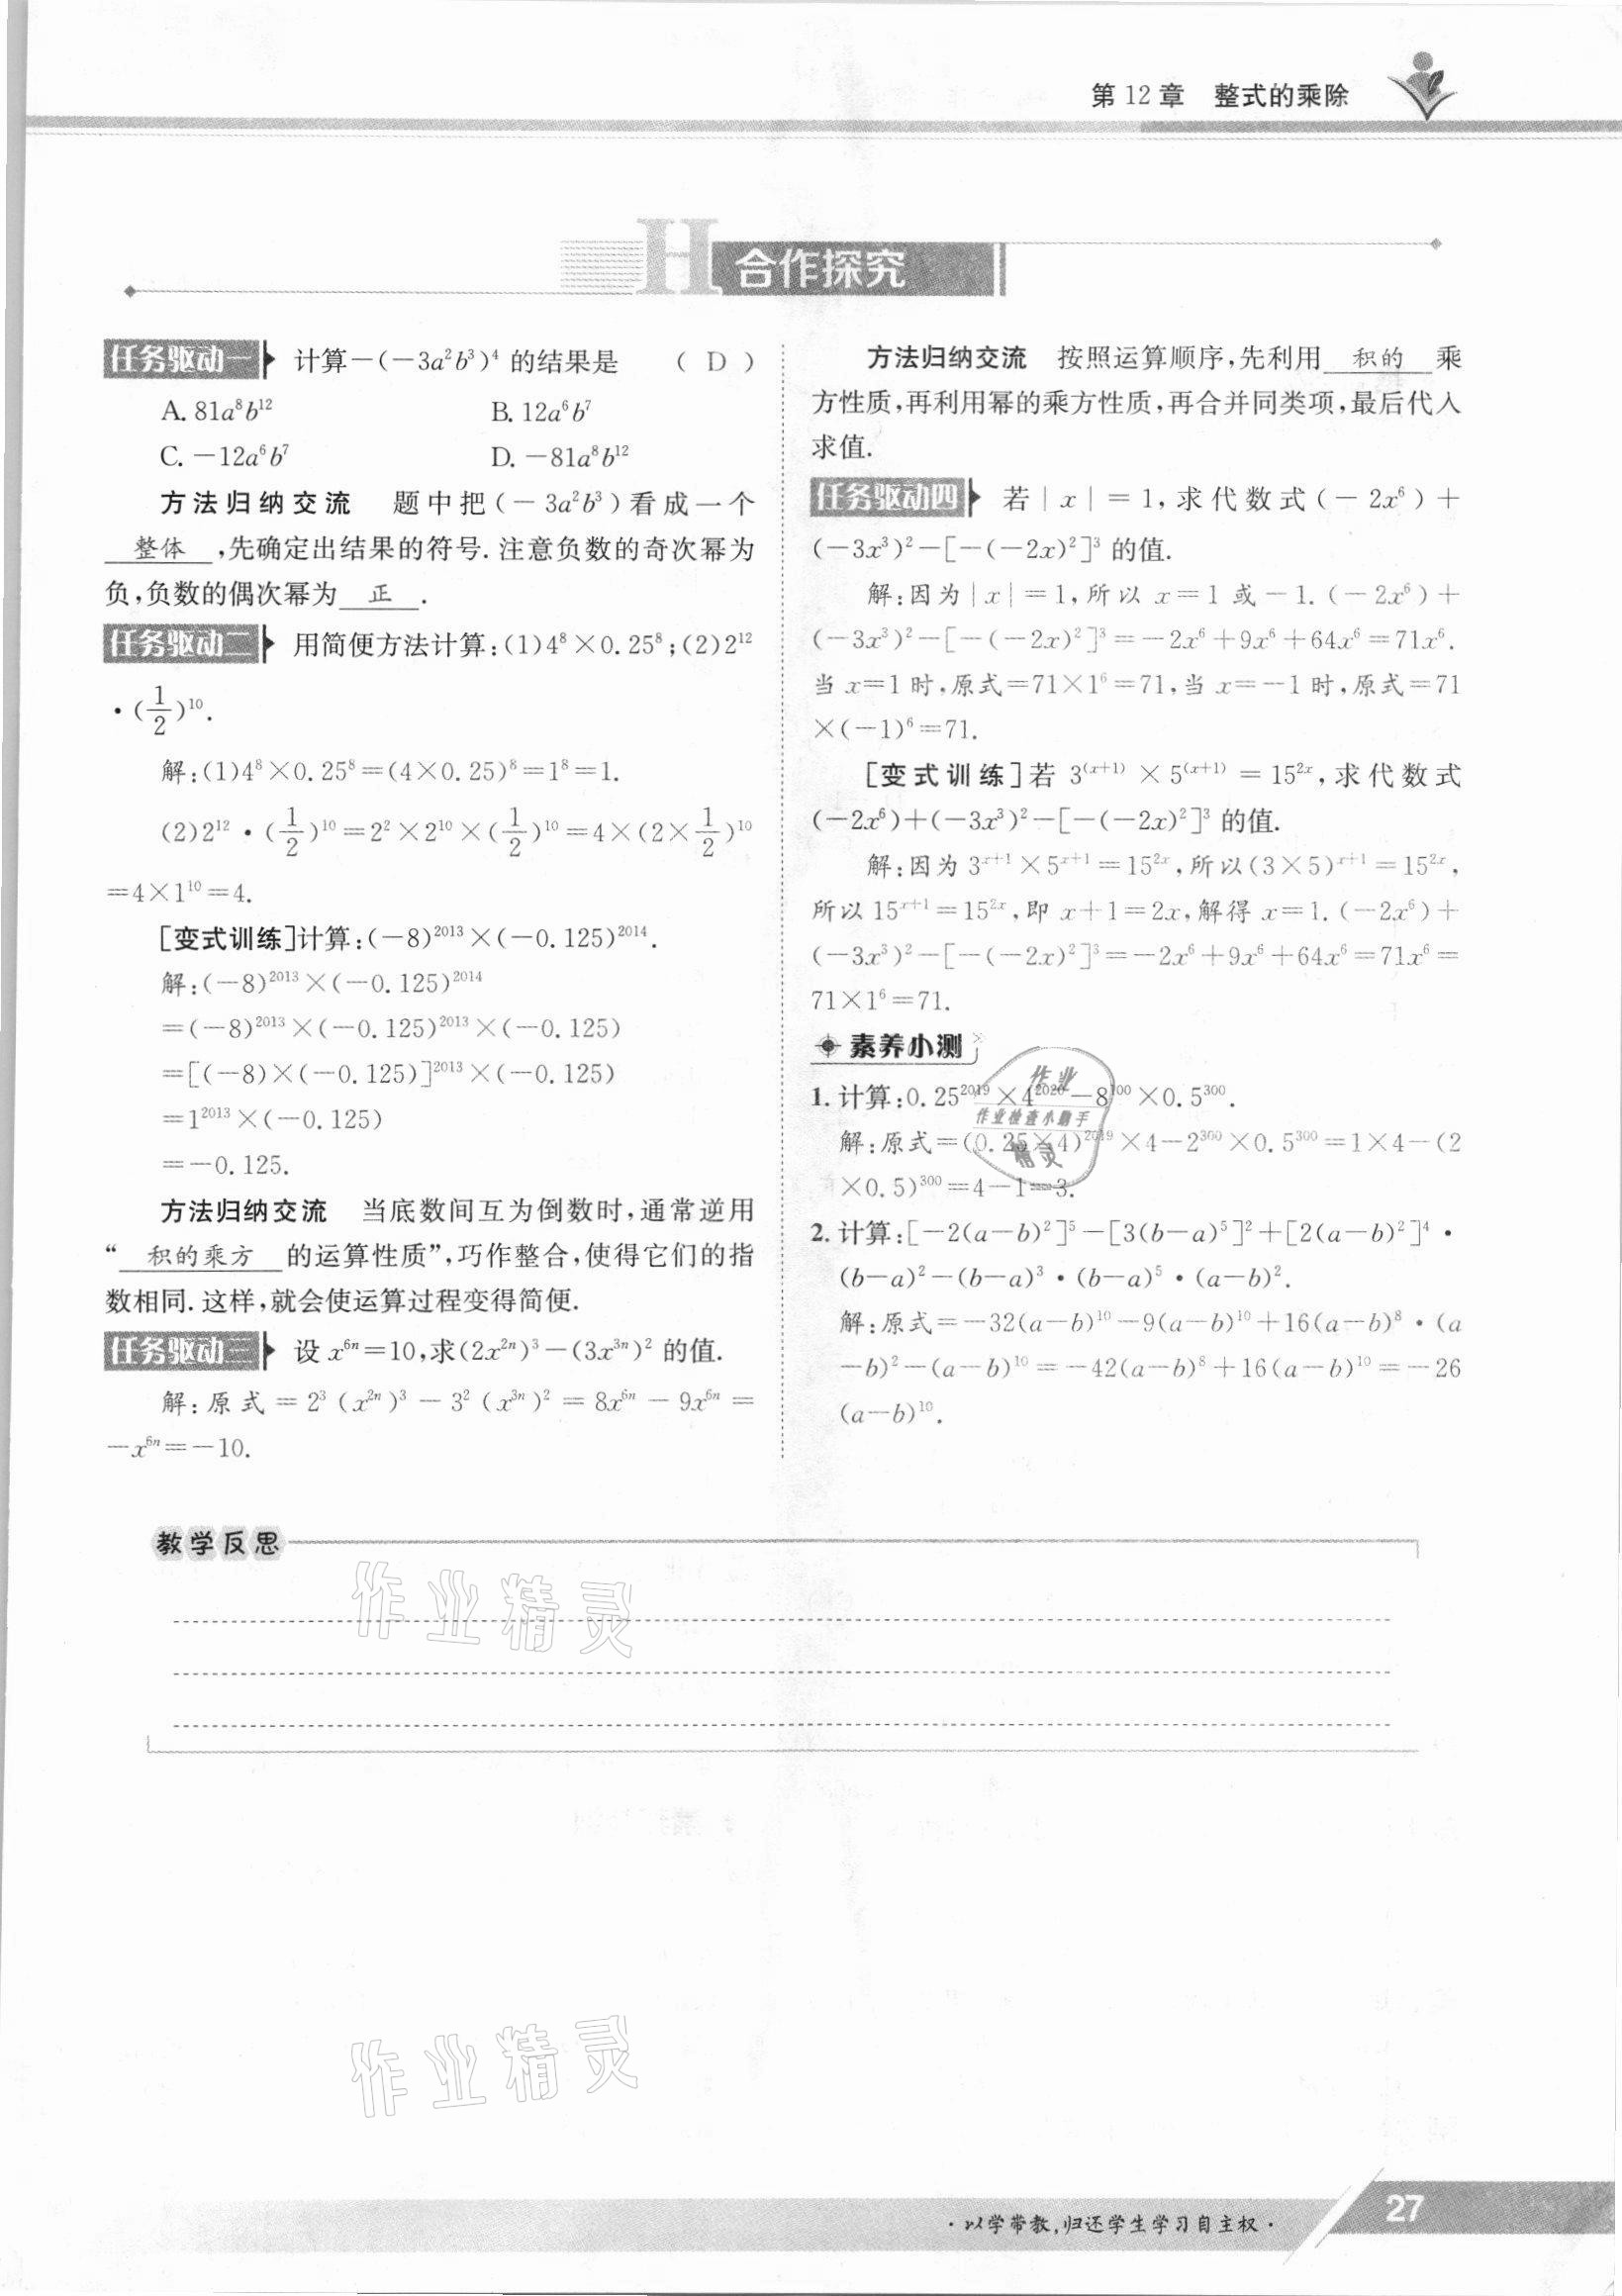 第 12 章　整式的乘除
H 合作探究
任务驱动一 计算－(－3a²b³)⁴ 的结果是　( D )
A. 81a⁸b¹²　B. 12a⁶b⁷
C. －12a⁶b⁷　D. －81a⁸b¹²
方法归纳交流　题中把(－3a²b³)看成一个
整体,先确定出结果的符号. 注意负数的奇次幂为
负,负数的偶次幂为 正 .
任务驱动二 用简便方法计算:(1)4⁸×0.25⁸;(2)2¹²
·(1/2)¹⁰.
解:(1)4⁸×0.25⁸＝(4×0.25)⁸＝1⁸＝1.
(2)2¹²·(1/2)¹⁰＝2²×2¹⁰×(1/2)¹⁰＝4×(2×1/2)¹⁰
＝4×1¹⁰＝4.
[变式训练]计算:(－8)²⁰¹³×(－0.125)²⁰¹⁴.
解:(－8)²⁰¹³×(－0.125)²⁰¹⁴
＝(－8)²⁰¹³×(－0.125)²⁰¹³×(－0.125)
＝[(－8)×(－0.125)]²⁰¹³×(－0.125)
＝1²⁰¹³×(－0.125)
＝－0.125.
方法归纳交流　当底数间互为倒数时,通常逆用
“ 积的乘方 的运算性质”,巧作整合,使得它们的指
数相同. 这样,就会使运算过程变得简便.
任务驱动三 设 x⁶ⁿ＝10,求(2x²ⁿ)³－(3x³ⁿ)² 的值.
解:原式＝2³(x²ⁿ)³－3²(x³ⁿ)²＝8x⁶ⁿ－9x⁶ⁿ＝
－x⁶ⁿ＝－10.
方法归纳交流　按照运算顺序,先利用 积的 乘
方性质,再利用幂的乘方性质,再合并同类项,最后代入
求值.
任务驱动四 若|x|＝1,求代数式(－2x⁶)＋
(－3x³)²－[－(－2x)²]³ 的值.
解:因为|x|＝1,所以 x＝1 或－1. (－2x⁶)＋
(－3x³)²－[－(－2x)²]³＝－2x⁶＋9x⁶＋64x⁶＝71x⁶.
当 x＝1 时,原式＝71×1⁶＝71,当 x＝－1 时,原式＝71
×(－1)⁶＝71.
[变式训练]若 3⁽ˣ⁺¹⁾×5⁽ˣ⁺¹⁾＝15²ˣ,求代数式
(－2x⁶)＋(－3x³)²－[－(－2x)²]³ 的值.
解:因为 3ˣ⁺¹×5ˣ⁺¹＝15²ˣ,所以(3×5)ˣ⁺¹＝15²ˣ,
所以 15ˣ⁺¹＝15²ˣ,即 x＋1＝2x,解得 x＝1. (－2x⁶)＋
(－3x³)²－[－(－2x)²]³＝－2x⁶＋9x⁶＋64x⁶＝71x⁶＝
71×1⁶＝71.
素养小测
1. 计算:0.25²⁰¹⁹×4²⁰²⁰－8¹⁰⁰×0.5³⁰⁰.
解:原式＝(0.25×4)²⁰¹⁹×4－2³⁰⁰×0.5³⁰⁰＝1×4－(2
×0.5)³⁰⁰＝4－1＝3.
作业
作业检查小助手
精灵
2. 计算:[－2(a－b)²]⁵－[3(b－a)⁵]²＋[2(a－b)²]⁴·
(b－a)²－(b－a)³·(b－a)⁵·(a－b)².
解:原式＝－32(a－b)¹⁰－9(a－b)¹⁰＋16(a－b)⁸·(a
－b)²－(a－b)¹⁰＝－42(a－b)⁸＋16(a－b)¹⁰＝－26
(a－b)¹⁰.
教学反思
作业精灵
作业精灵
·以学带教,归还学生学习自主权·
27